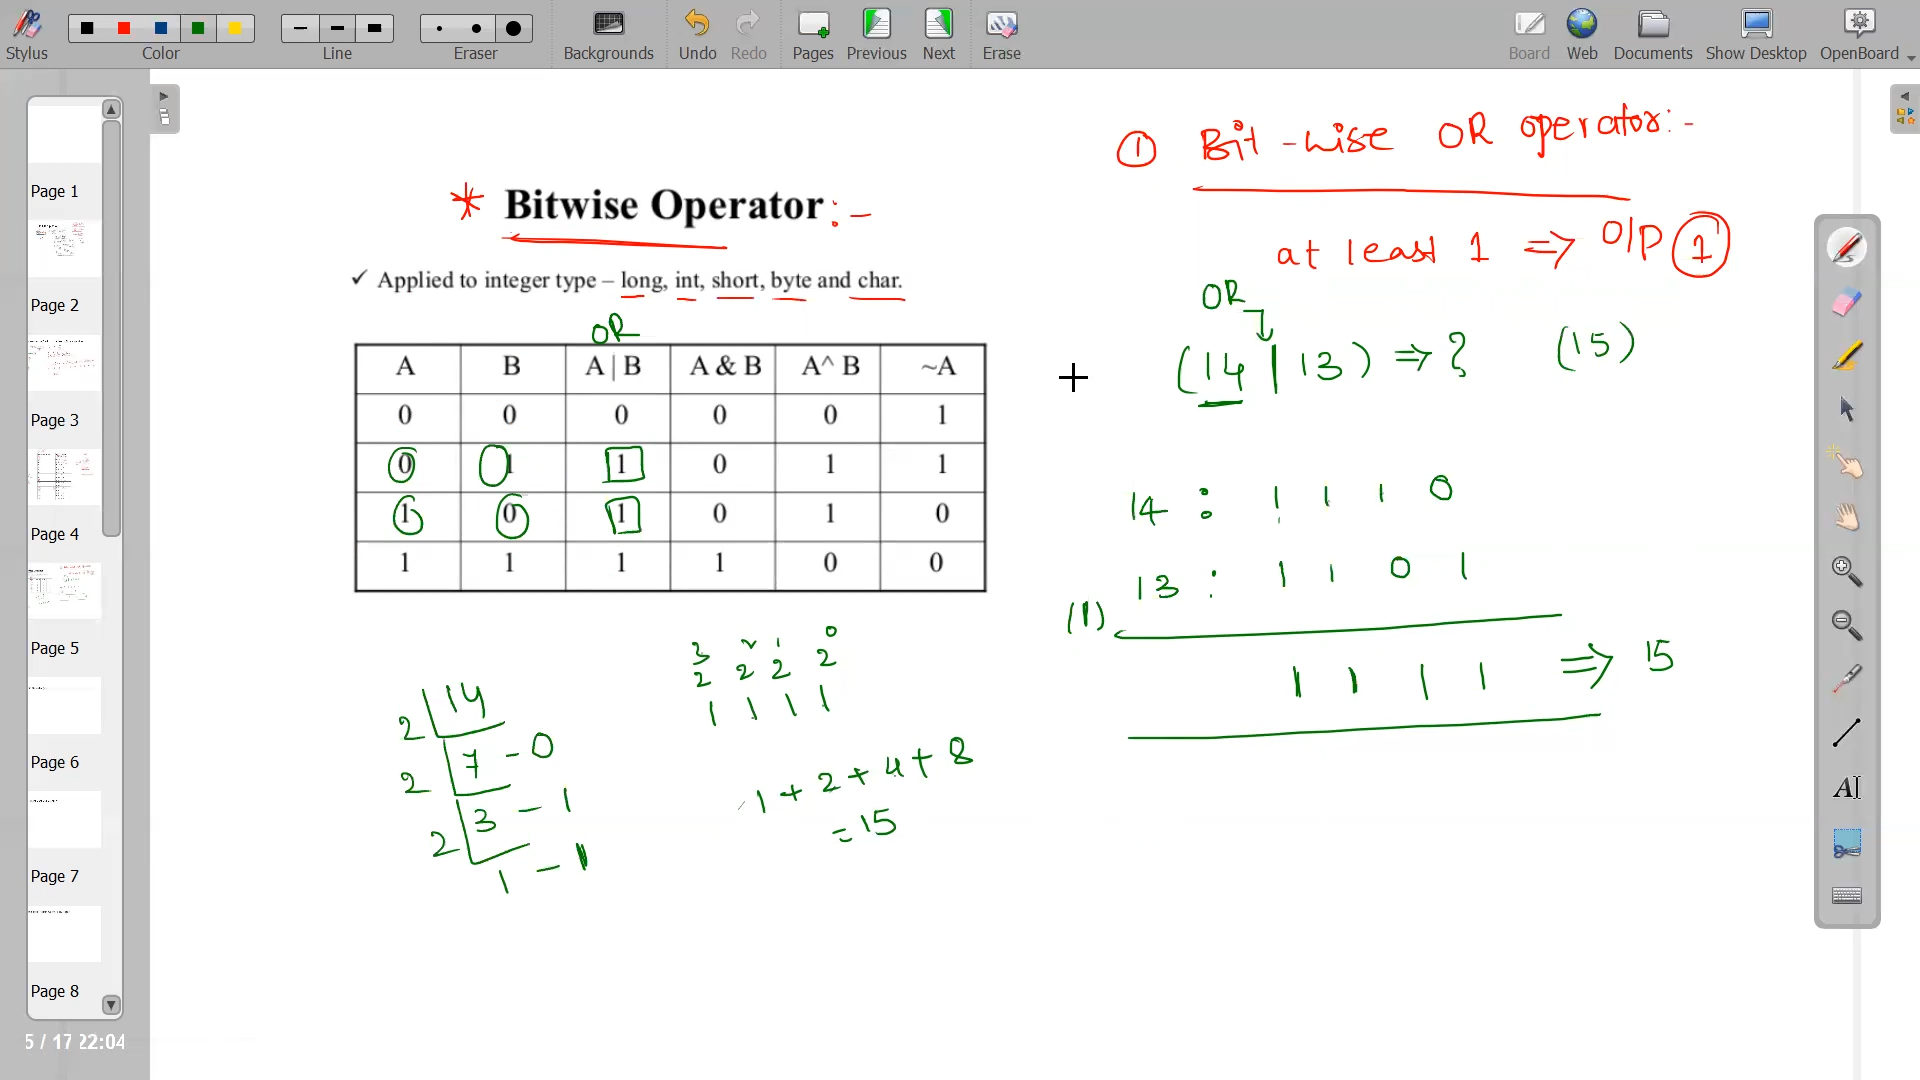 Stylus Color Line Eraser Backgrounds Undo Redo Pages Previous Next Erase Board Web Documents Show Desktop OpenBoard
Page 1
Page 2
Page 3
Page 4
Page 5
Page 6
Page 7
Page 8
5 / 17 22:04
* Bitwise Operator :-
✓ Applied to integer type – long, int, short, byte and char.
OR
A B A | B A & B A^ B ~A
0 0 0 0 0 1
0 1 1 0 1 1
1 0 1 0 1 0
1 1 1 1 0 0
3 2 1 0
2 2 2 2
1 1 1 1
2 14
2 7 - 0
2 3 - 1
1 - 1
1 + 2 + 4 + 8
= 15
① Bit-wise OR operator:-
at least 1 => O/P 1
OR
(14 | 13) => ? (15)
14 : 1 1 1 0
13 : 1 1 0 1
(|)
1 1 1 1 => 15
A